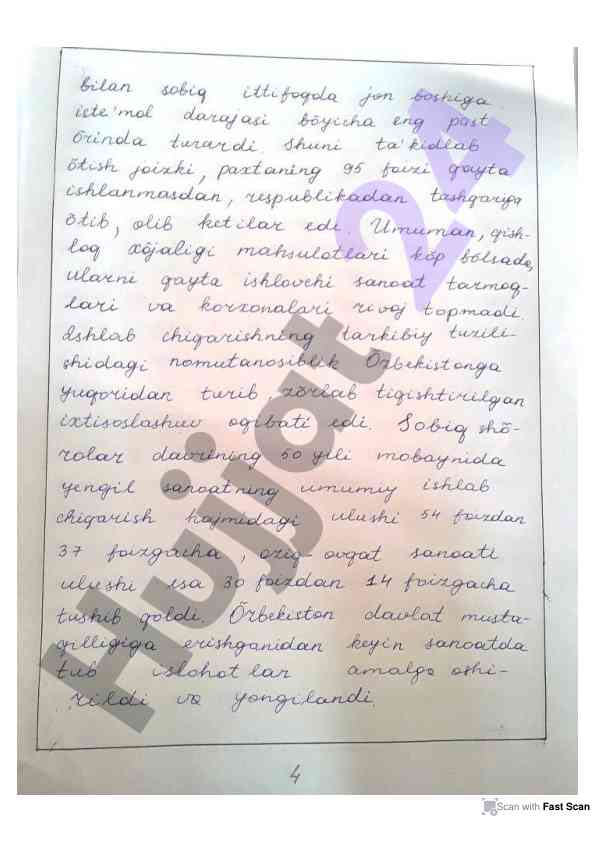 bilan sobiq ittifoqda jon boshiga
iste'mol darajasi bõyicha eng past
õrinda turardi. Shuni ta'kidlab
õtish joizki, paxtaning 95 foizi qayta
ishlanmasdan, respublikadan tashqariga
õtib, olib ketilar edi. Umuman, qish-
loq xõjaligi mahsulotlari kõp bõlsada,
ularni qayta ishlovchi sanoat tarmoq-
lari va korxonalari rivoj topmadi.
Ishlab chiqarishning tarkibiy tuzili-
shidagi nomutanosiblik Õzbekistonga
yuqoridan turib, zõrlab tiqishtirilgan
ixtisoslashuv oqibati edi. Sobiq shõ-
rolar davrining 50 yili mobaynida
yengil sanoatning umumiy ishlab
chiqarish hajmidagi ulushi 54 foizdan
37 foizgacha, oziq-ovqat sanoati
ulushi esa 30 foizdan 14 foizgacha
tushib qoldi. Õzbekiston davlat musta-
qilligiga erishganidan keyin sanoatda
tub islohotlar amalga oshi-
rildi va yangilandi.
4
Hujjat 24
Scan with Fast Scan